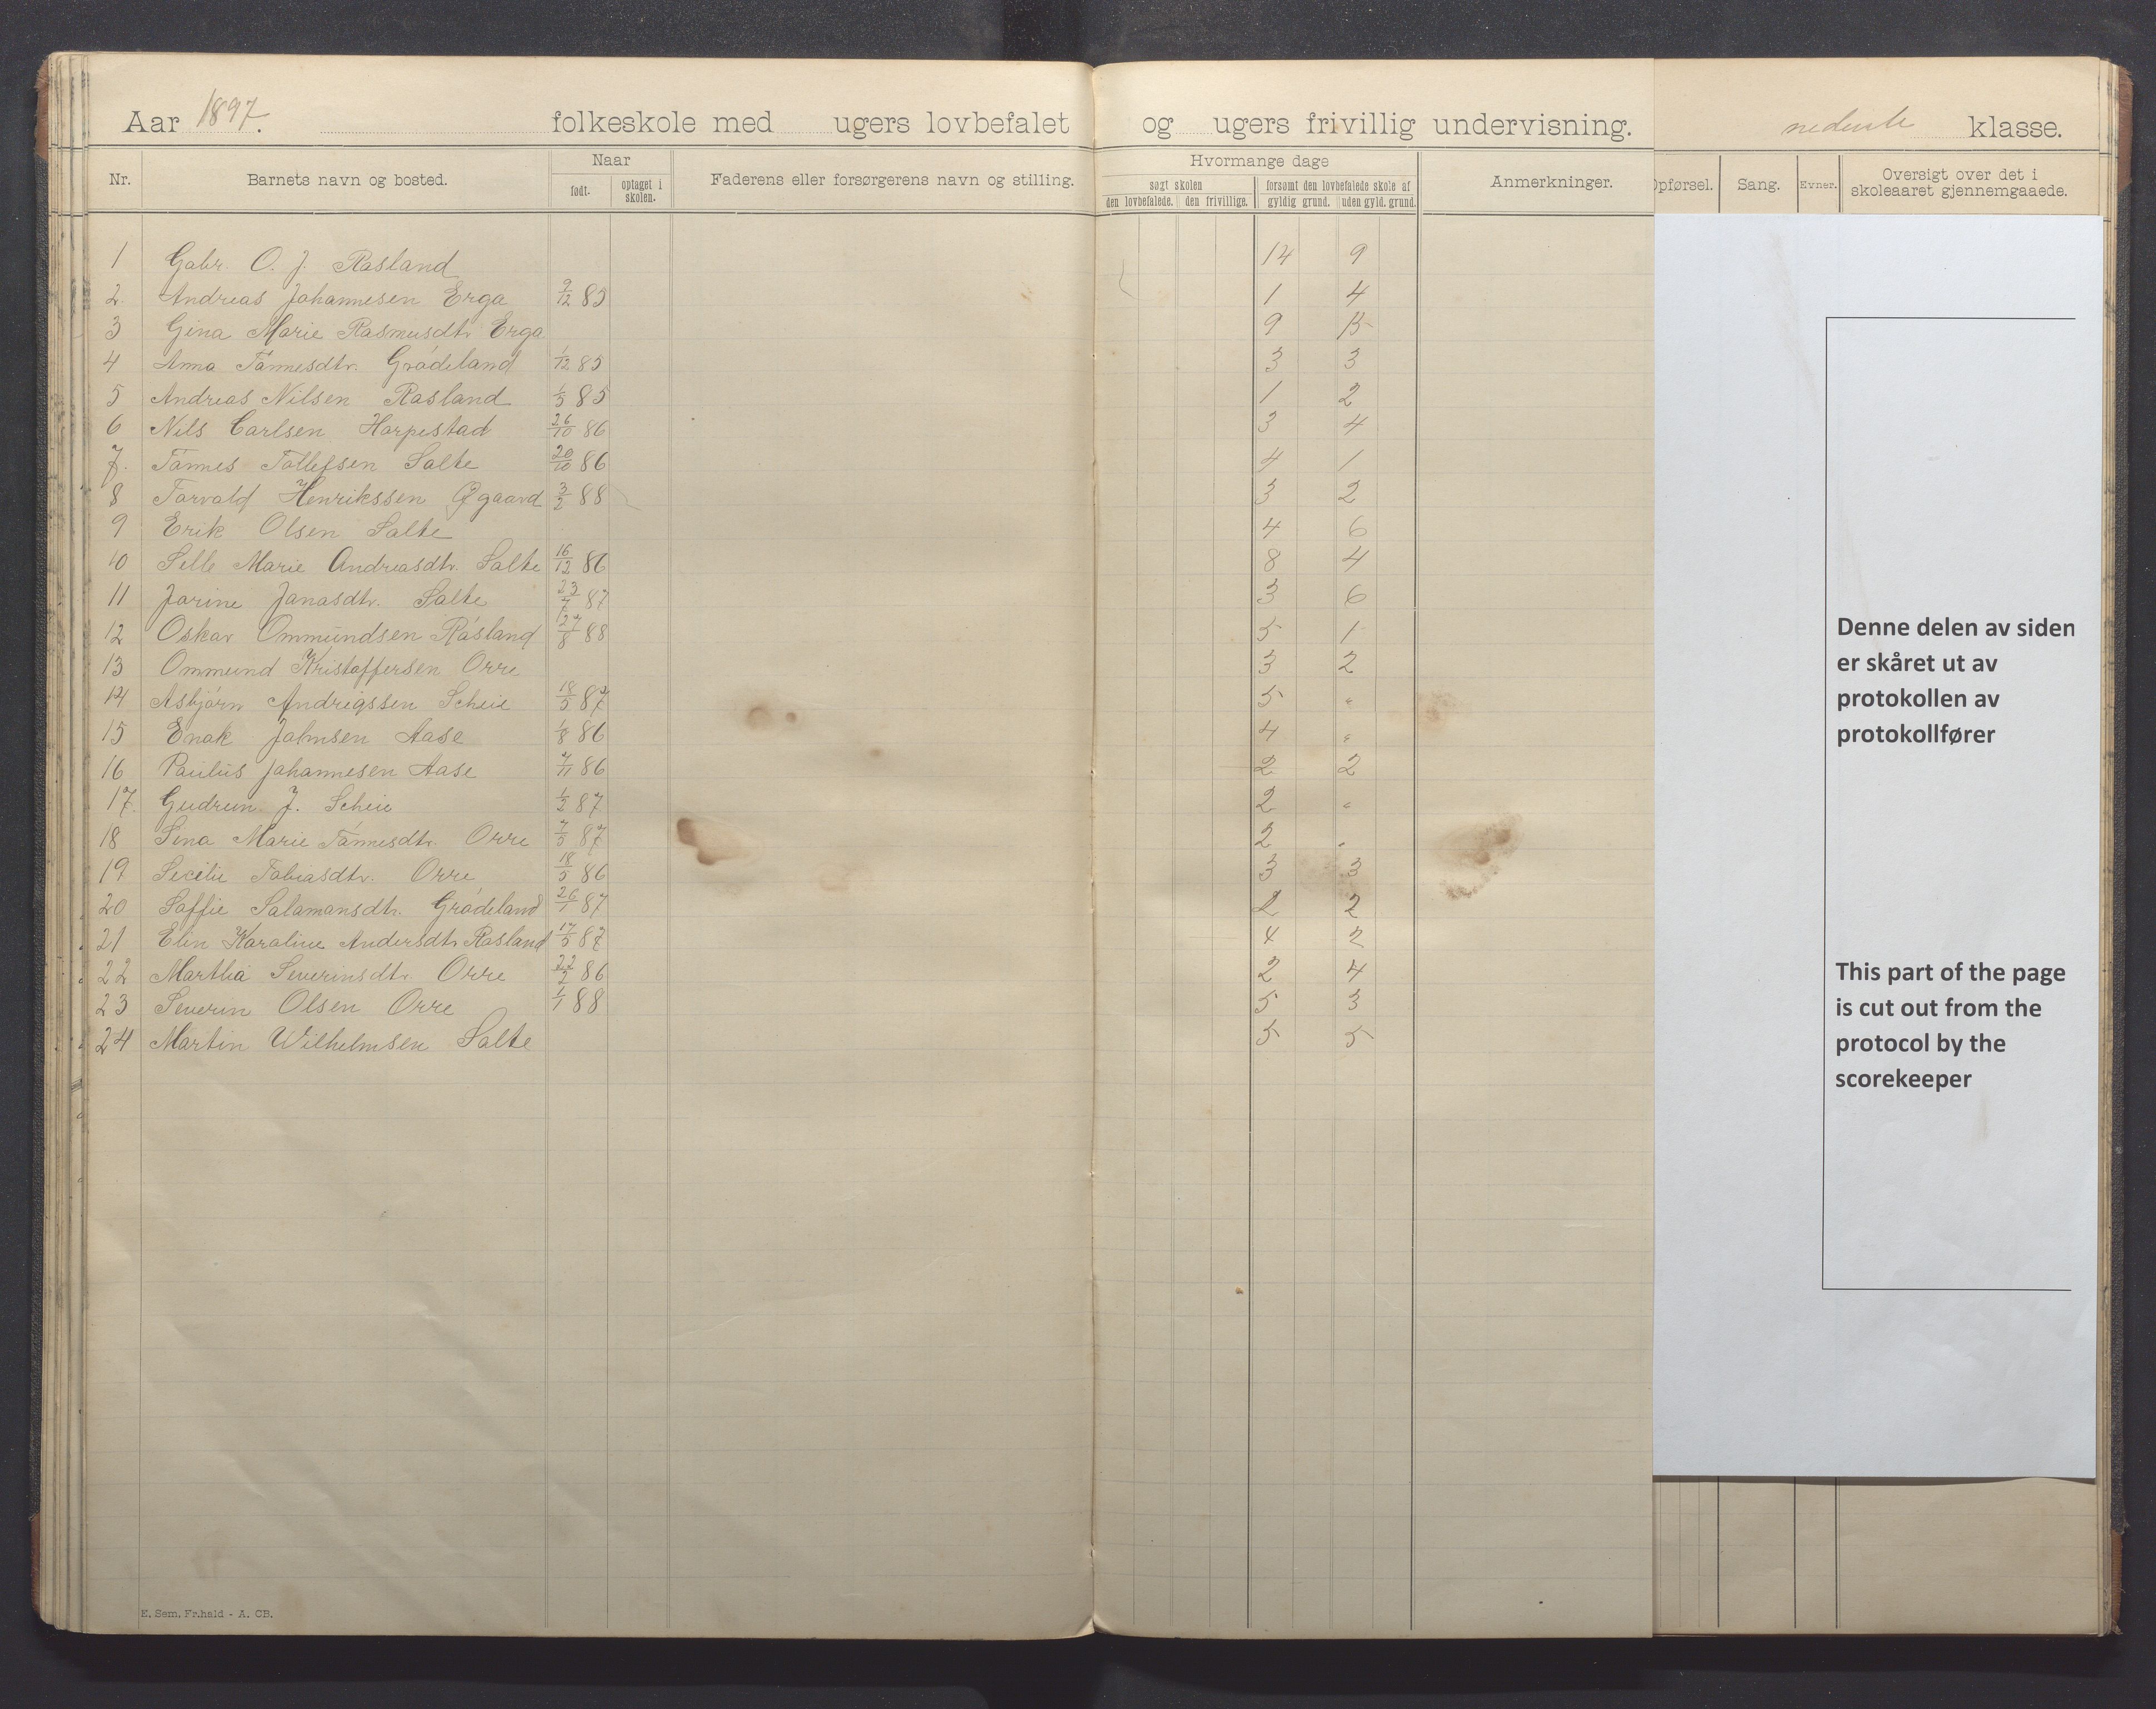 Aar 1897. folkeskole med ugers lovbefalet og ugers frivillig undervisning. nederste klasse.
Nr. Barnets navn og bosted. Naar født. optaget i skolen. Faderens eller forsørgerens navn og stilling. Hvormange dage søgt skolen den lovbefalede. den frivillige. forsømt den lovbefalede skole af gyldig grund. uden gyld. grund. Anmerkninger. Opførsel. Sang. Evner. Oversigt over det i skoleaaret gjennemgaaede.
1 Gabr. O. J. Rosland 14 9
2. Andreas Johannesen Erga 9/12 85 1 4
3 Gina Marie Rasmusdtr. Erga 9 15
4 Anna Tønnesdtr. Grødeland 1/12 85 3 3
5 Andreas Nilsen Rosland 1/5 85 1 2
6 Nils Carlsen Horpestad 26/10 86 3 4
7. Tønnes Tollefsen Salte 20/10 86 4 1
8 Torvald Henrikssen 3/2 88 3 2
9 Erik Olsen Salte 4 6
10 Selle Marie Andreasdtr. Salte 16/12 86 8 4
11 Jorine Jonasdtr. Salte 23/7 87 3 6
12 Oskar Ommundsen Rosland 27/8 88 5 1
13 Ommund Kristoffersen Orre 3 2
14 Asbjørn Andrigssen Scheie 18/5 87 5 "
15 Enok Johnsen Aase 1/8 86 4 "
16 Paulus Johannesen Aase 7/11 86 2 2
17. Gudrun J. Scheie 1/2 87 2 "
18 Sina Marie Tønnesdtr. Orre 7/5 87 2 "
19 Secilie Tobiasdtr. Orre 18/5 86 3 3
20 Soffie Salamonsdtr. Grødeland 26/1 87 2 2
21 Elin Karoline Andersdtr. Rosland 17/5 87 4 2
22 Martha Severinsdtr. Orre 22/2 86 2 4
23 Severin Olsen Orre 1/1 88 5 3
24 Martin Wilhelmsen Salte 5 5
E. Sem, Fr.hald - A. CB.
Denne delen av siden
er skåret ut av
protokollen av
protokollfører
This part of the page
is cut out from the
protocol by the
scorekeeper